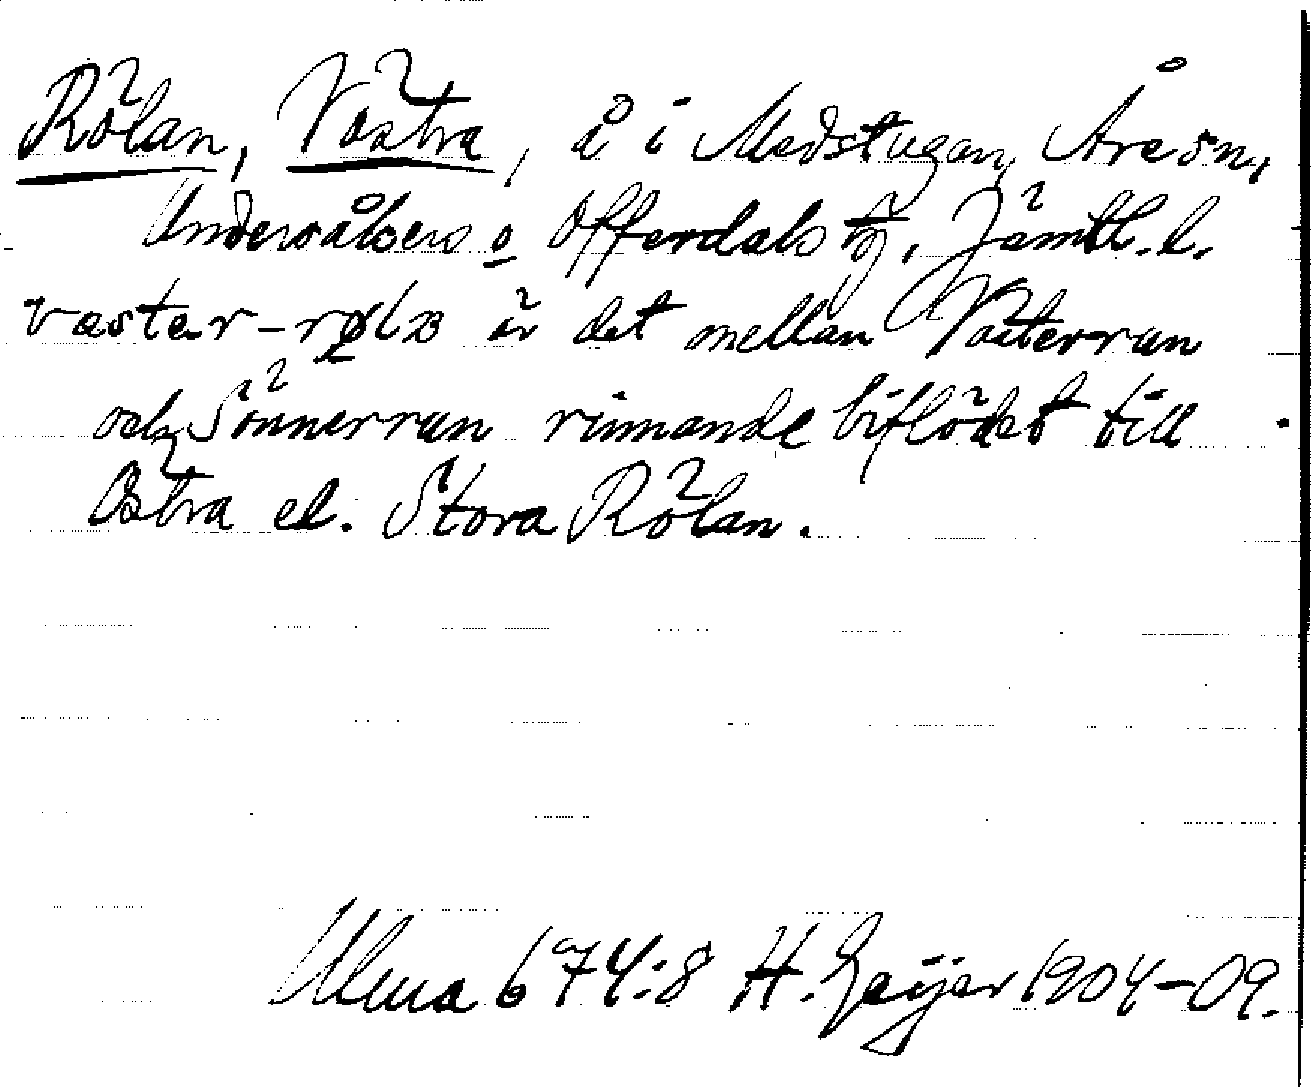 Rölan, Västra, å i Medstugan, Åre sn,
Undersåkers o Offerdals tg, Jämtl. l.
væster-rølɜ är det mellan Västerrun
och Sönnerrun rinnande biflödet till
Östra el. Stora Rölan.
Ulma 674:8 H. Geijer 1904-09.